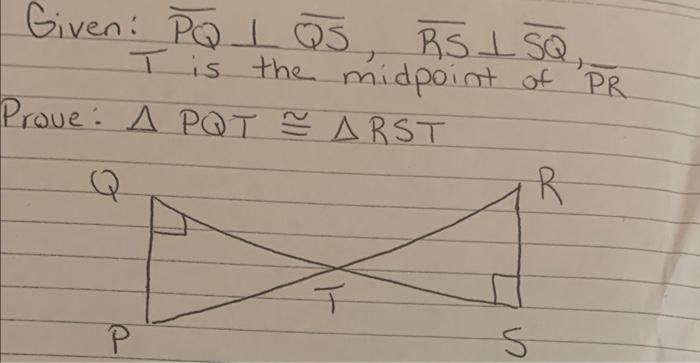 Given: P̅Q̅ ⊥ Q̅S̅, R̅S̅ ⊥ S̅Q̅,
T is the midpoint of P̅R̅
Prove: Δ PQT ≅ Δ RST
Q R
T
P S